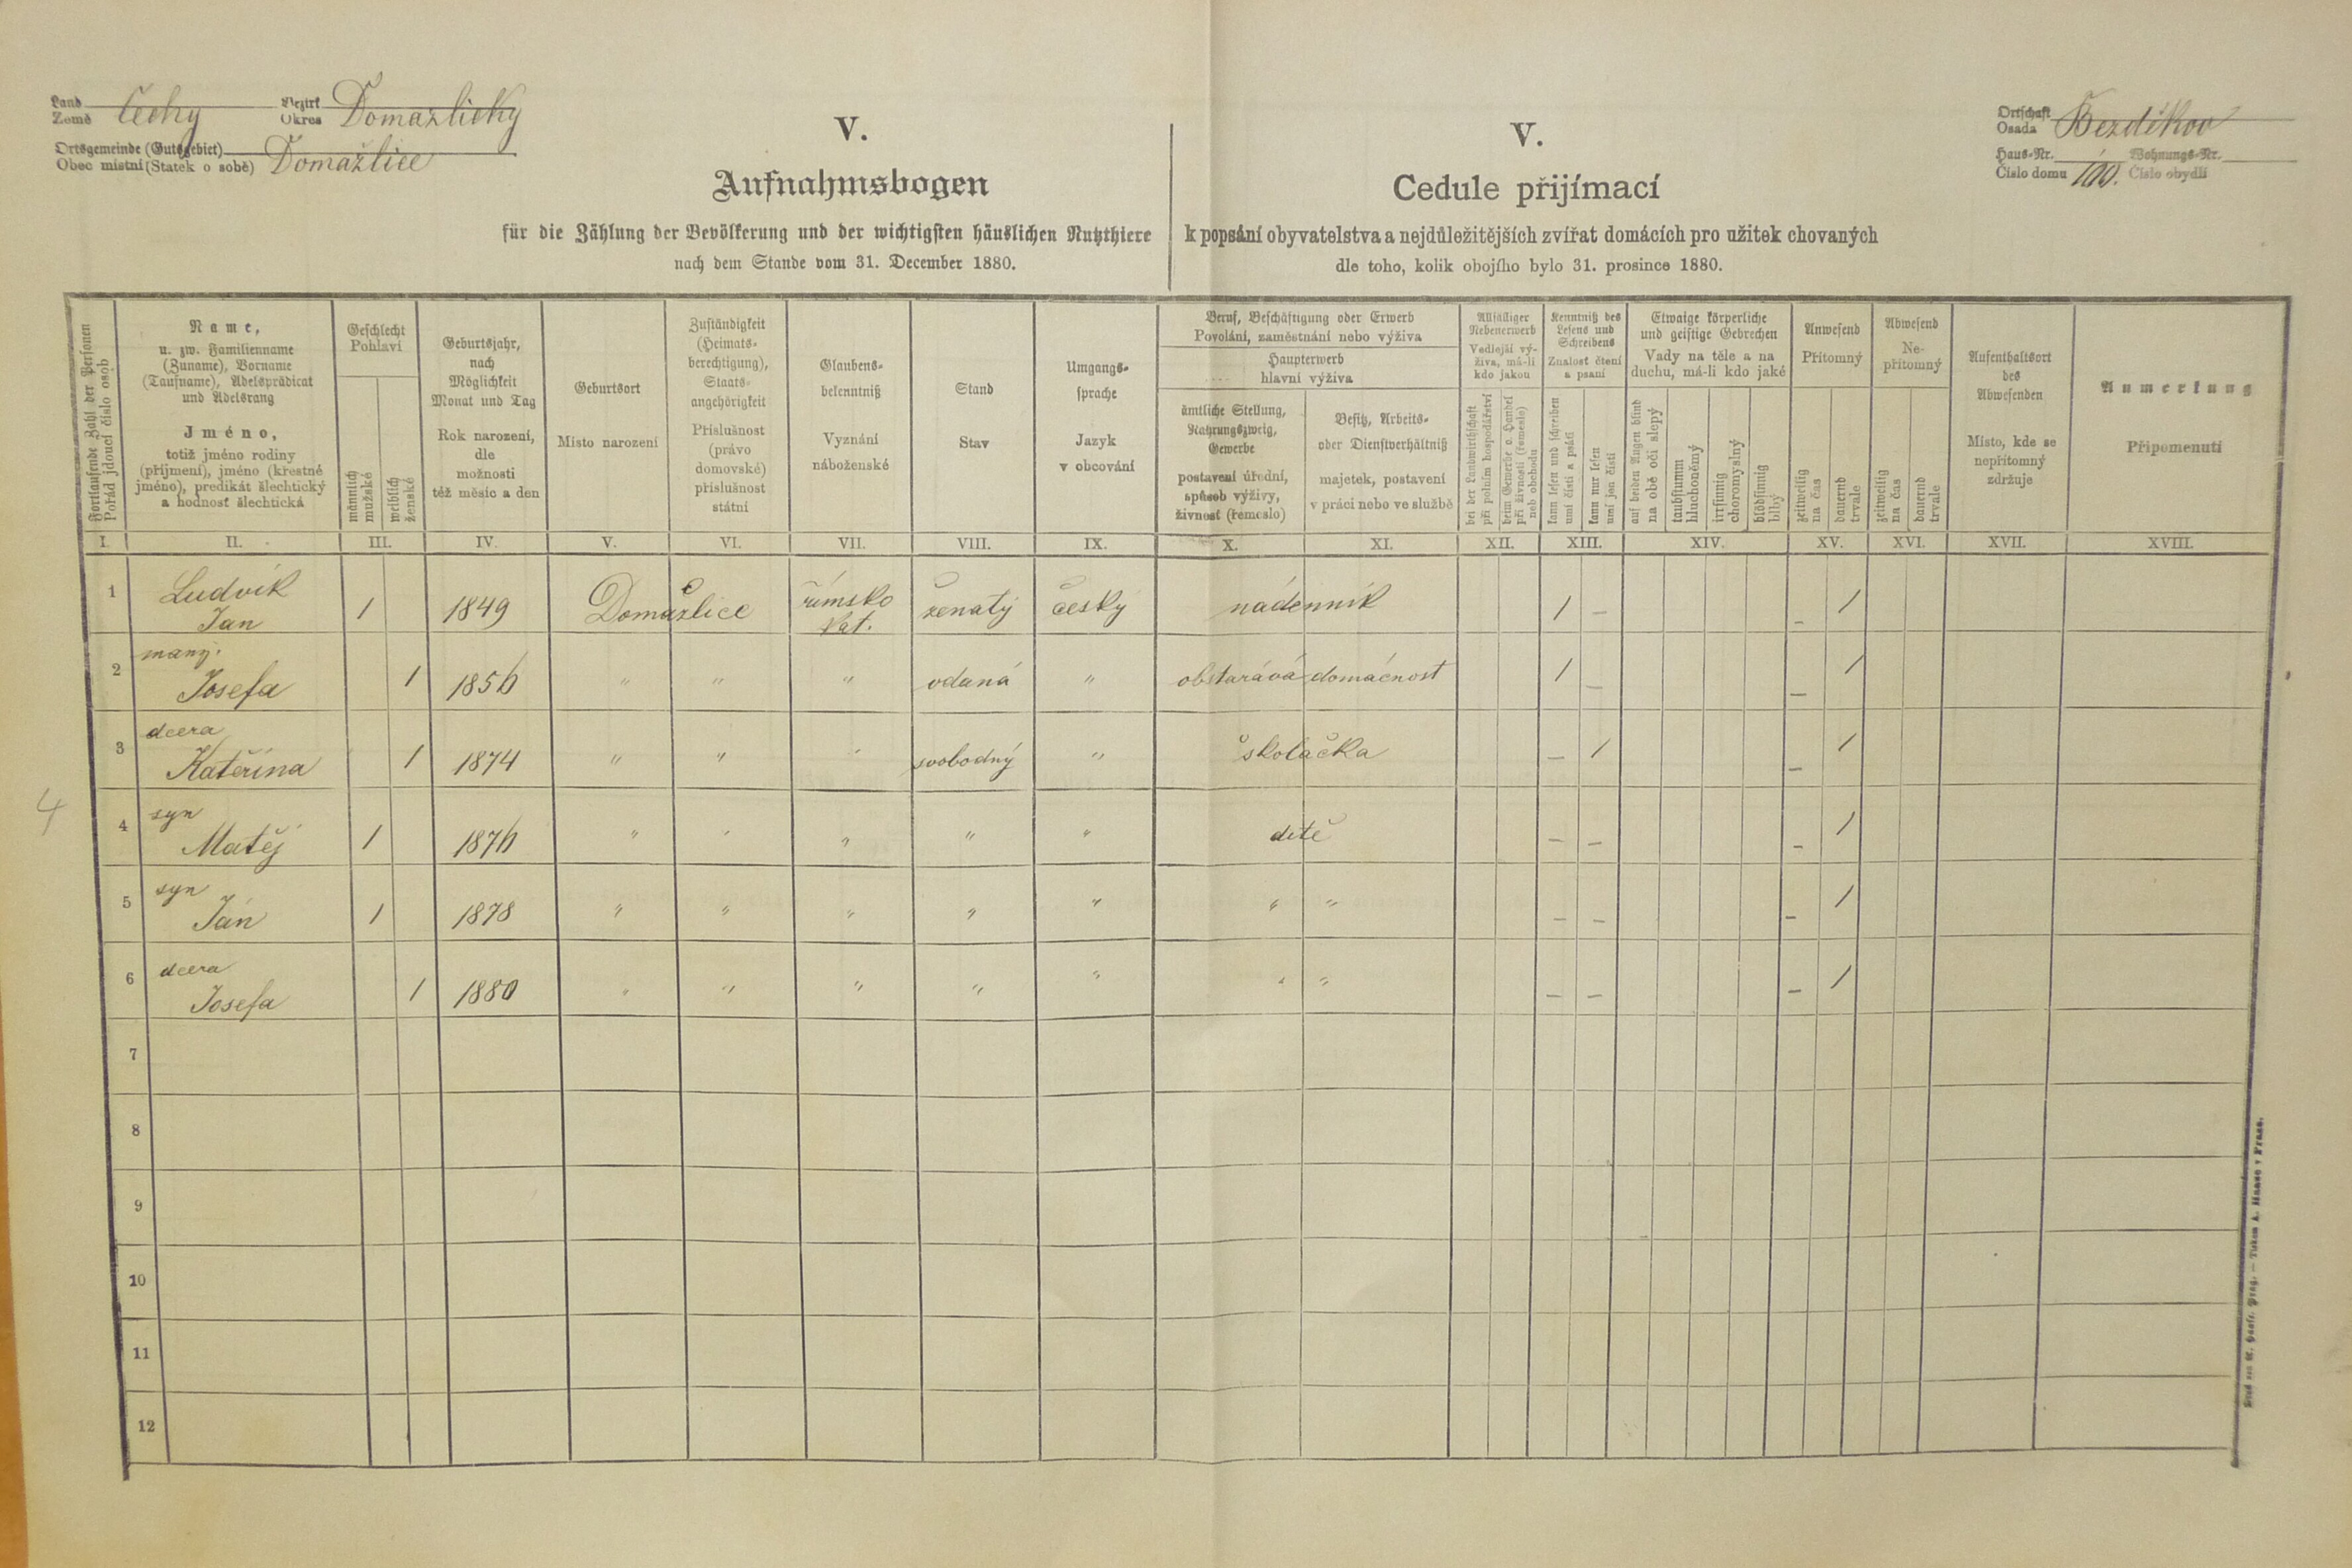 Land Země Čechy Bezirk Okres Domažlický
Ortsgemeinde (Gutsgebiet)
Obec místní (Statek o sobě) Domažlice
Ortschaft Osada Bezděkov
Haus-Nr. Wohnungs-Nr.
Číslo domu 100. Číslo obydlí
V.
Aufnahmsbogen
für die Zählung der Bevölkerung und der wichtigsten häuslichen Nutzthiere
nach dem Stande vom 31. December 1880.
V.
Cedule přijímací
k popsání obyvatelstva a nejdůležitějších zvířat domácích pro užitek chovaných
dle toho, kolik obojího bylo 31. prosince 1880.
Fortlaufende Zahl der Personen
Pořád jdoucí číslo osob
Name,
u. zw. Familienname
(Zuname), Vorname
(Taufname), Adelsprädicat
und Adelsrang
Jméno,
totiž jméno rodiny
(příjmení), jméno (křestné
jméno), predikát šlechtický
a hodnosť šlechtická
Geschlecht
Pohlaví
männlich
mužské
weiblich
ženské
Geburtsjahr,
nach
Möglichkeit
Monat und Tag
Rok narození,
dle
možnosti
též měsíc a den
Geburtsort
Místo narození
Zuständigkeit
(Heimats-
berechtigung),
Staats-
angehörigkeit
Příslušnost
(právo
domovské)
příslušnost
státní
Glaubens-
bekenntniß
Vyznání
náboženské
Stand
Stav
Umgangs-
sprache
Jazyk
v obcování
Beruf, Beschäftigung oder Erwerb
Povolání, zaměstnání nebo výživa
Haupterwerb
hlavní výživa
ämtliche Stellung,
Nahrungszweig,
Gewerbe
postavení úřední,
spůsob výživy,
živnosť (řemeslo)
Besitz, Arbeits-
oder Dienstverhältniß
majetek, postavení
v práci nebo ve službě
Allfälliger
Nebenerwerb
Vedlejší vý-
živa, má-li
kdo jakou
bei der Landwirthschaft
při polním hospodářství
beim Gewerbe o. Handel
při živnosti (řemeslo)
neb obchodu
Kenntniß des
Lesens und
Schreibens
Znalosť čtení
a psaní
kann lesen und schreiben
umí čísti a psáti
kann nur lesen
umí jen čísti
Etwaige körperliche
und geistige Gebrechen
Vady na těle a na
duchu, má-li kdo jaké
auf beiden Augen blind
na obě oči slepý
taubstumm
hluchoněmý
irrsinnig
choromyslný
blödsinnig
blbý
Anwesend
Přítomný
zeitweilig
na čas
dauernd
trvale
Abwesend
Ne-
přítomný
zeitweilig
na čas
dauernd
trvale
Aufenthaltsort
des
Abwesenden
Místo, kde se
nepřítomný
zdržuje
Anmerkung
Připomenutí
I. II. III. IV. V. VI. VII. VIII. IX. X. XI. XII. XIII. XIV. XV. XVI. XVII. XVIII.
1 Ludvík Jan 1 1849 Domažlice římsko kat. ženatý český nádenník 1 – – 1
2 manž. Josefa 1 1856 " " " vdaná " obstarává domácnost 1 – – 1
3 dcera Kateřina 1 1874 " " " svobodný " školačka – 1 – 1
4 syn Matěj 1 1876 " " " " " dítě – – – 1
5 syn Ján 1 1878 " " " " " " " – – – 1
6 dcera Josefa 1 1880 " " " " " " " – – – 1
7
8
9
10
11
12
4